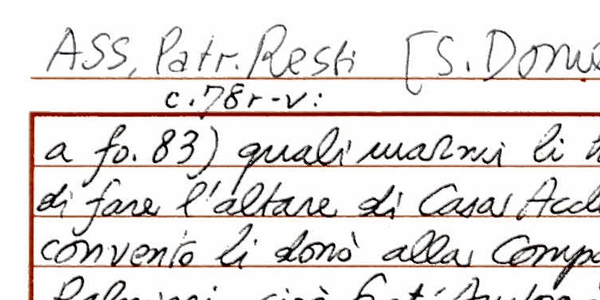 ASS, Patr. Resti [S. Dome
c. 78 r-v:
a fo. 83) quali marmi li
di fare l'altare di Casa Accl
convento li donò alla Comp